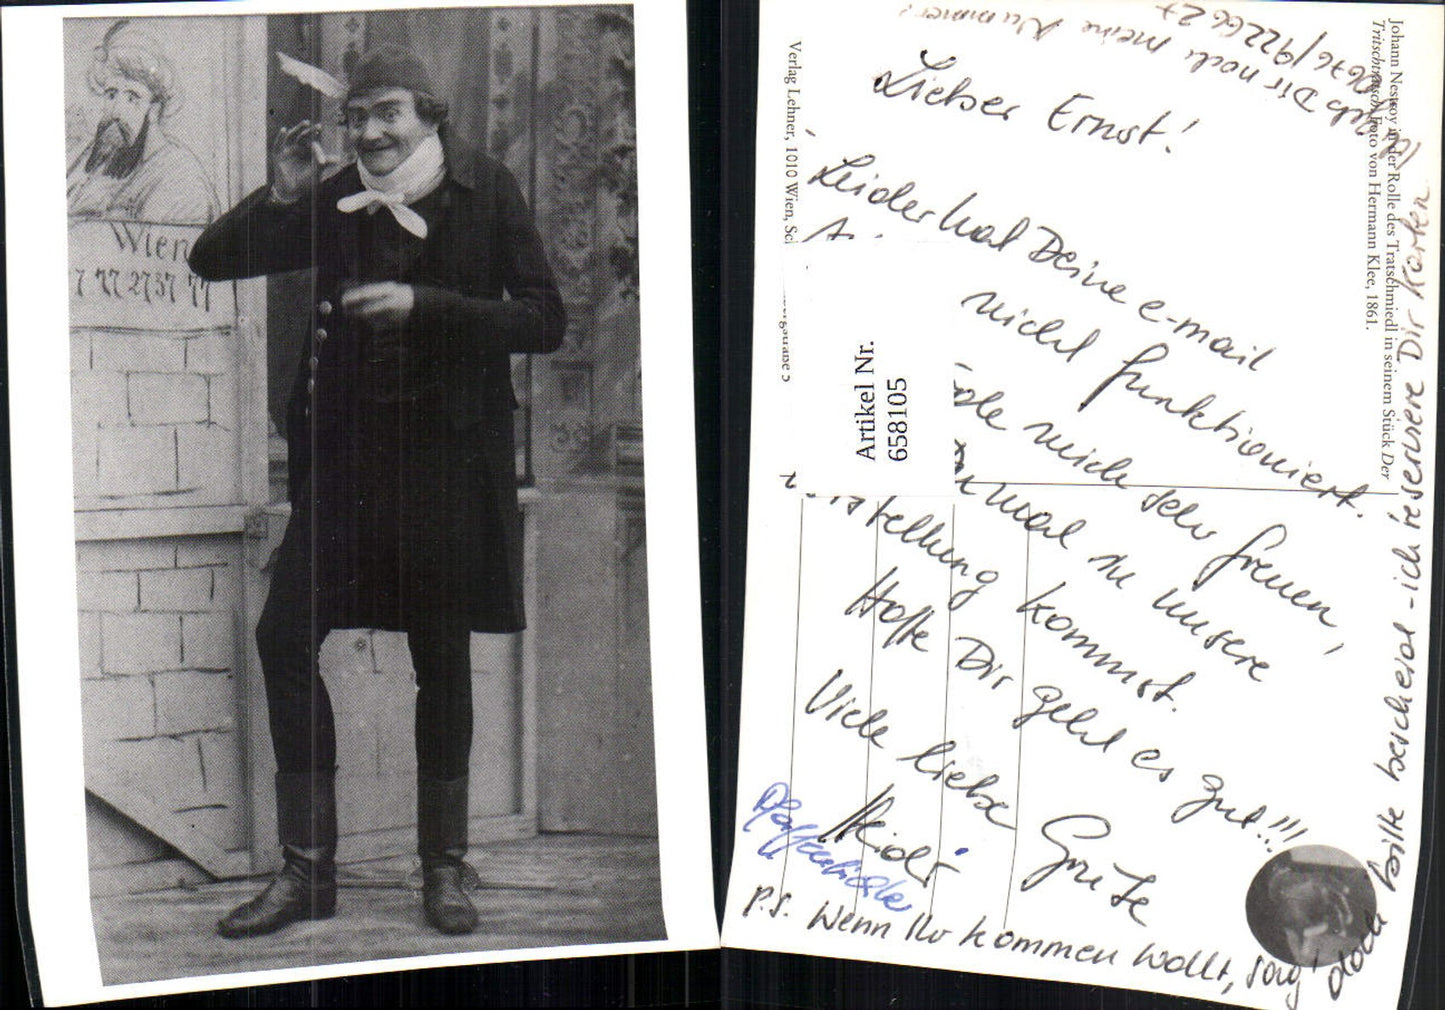 Wien
7 77 27 37 77
Verlag Lehner, 1010 Wien,
Artikel Nr.
658105
Johann Nestroy in der Rolle des Tratschmiedl in seinem Stück Der
Tritschtratsch. Foto von Hermann Klee, 1861.
Lieber Ernst!
Leider hat Deine e-mail
nicht funktioniert.
mich sehr freuen,
mal zu unsere
kommst.
Hoffe Dir geht es gut!!!
Viele liebe Grüße
Heidi
P.S. Wenn Ihr kommen wollt, sag'
doch bitte bescheid - ich reserviere Dir Karten
Dir noch meine Nummer:
0676/9226627